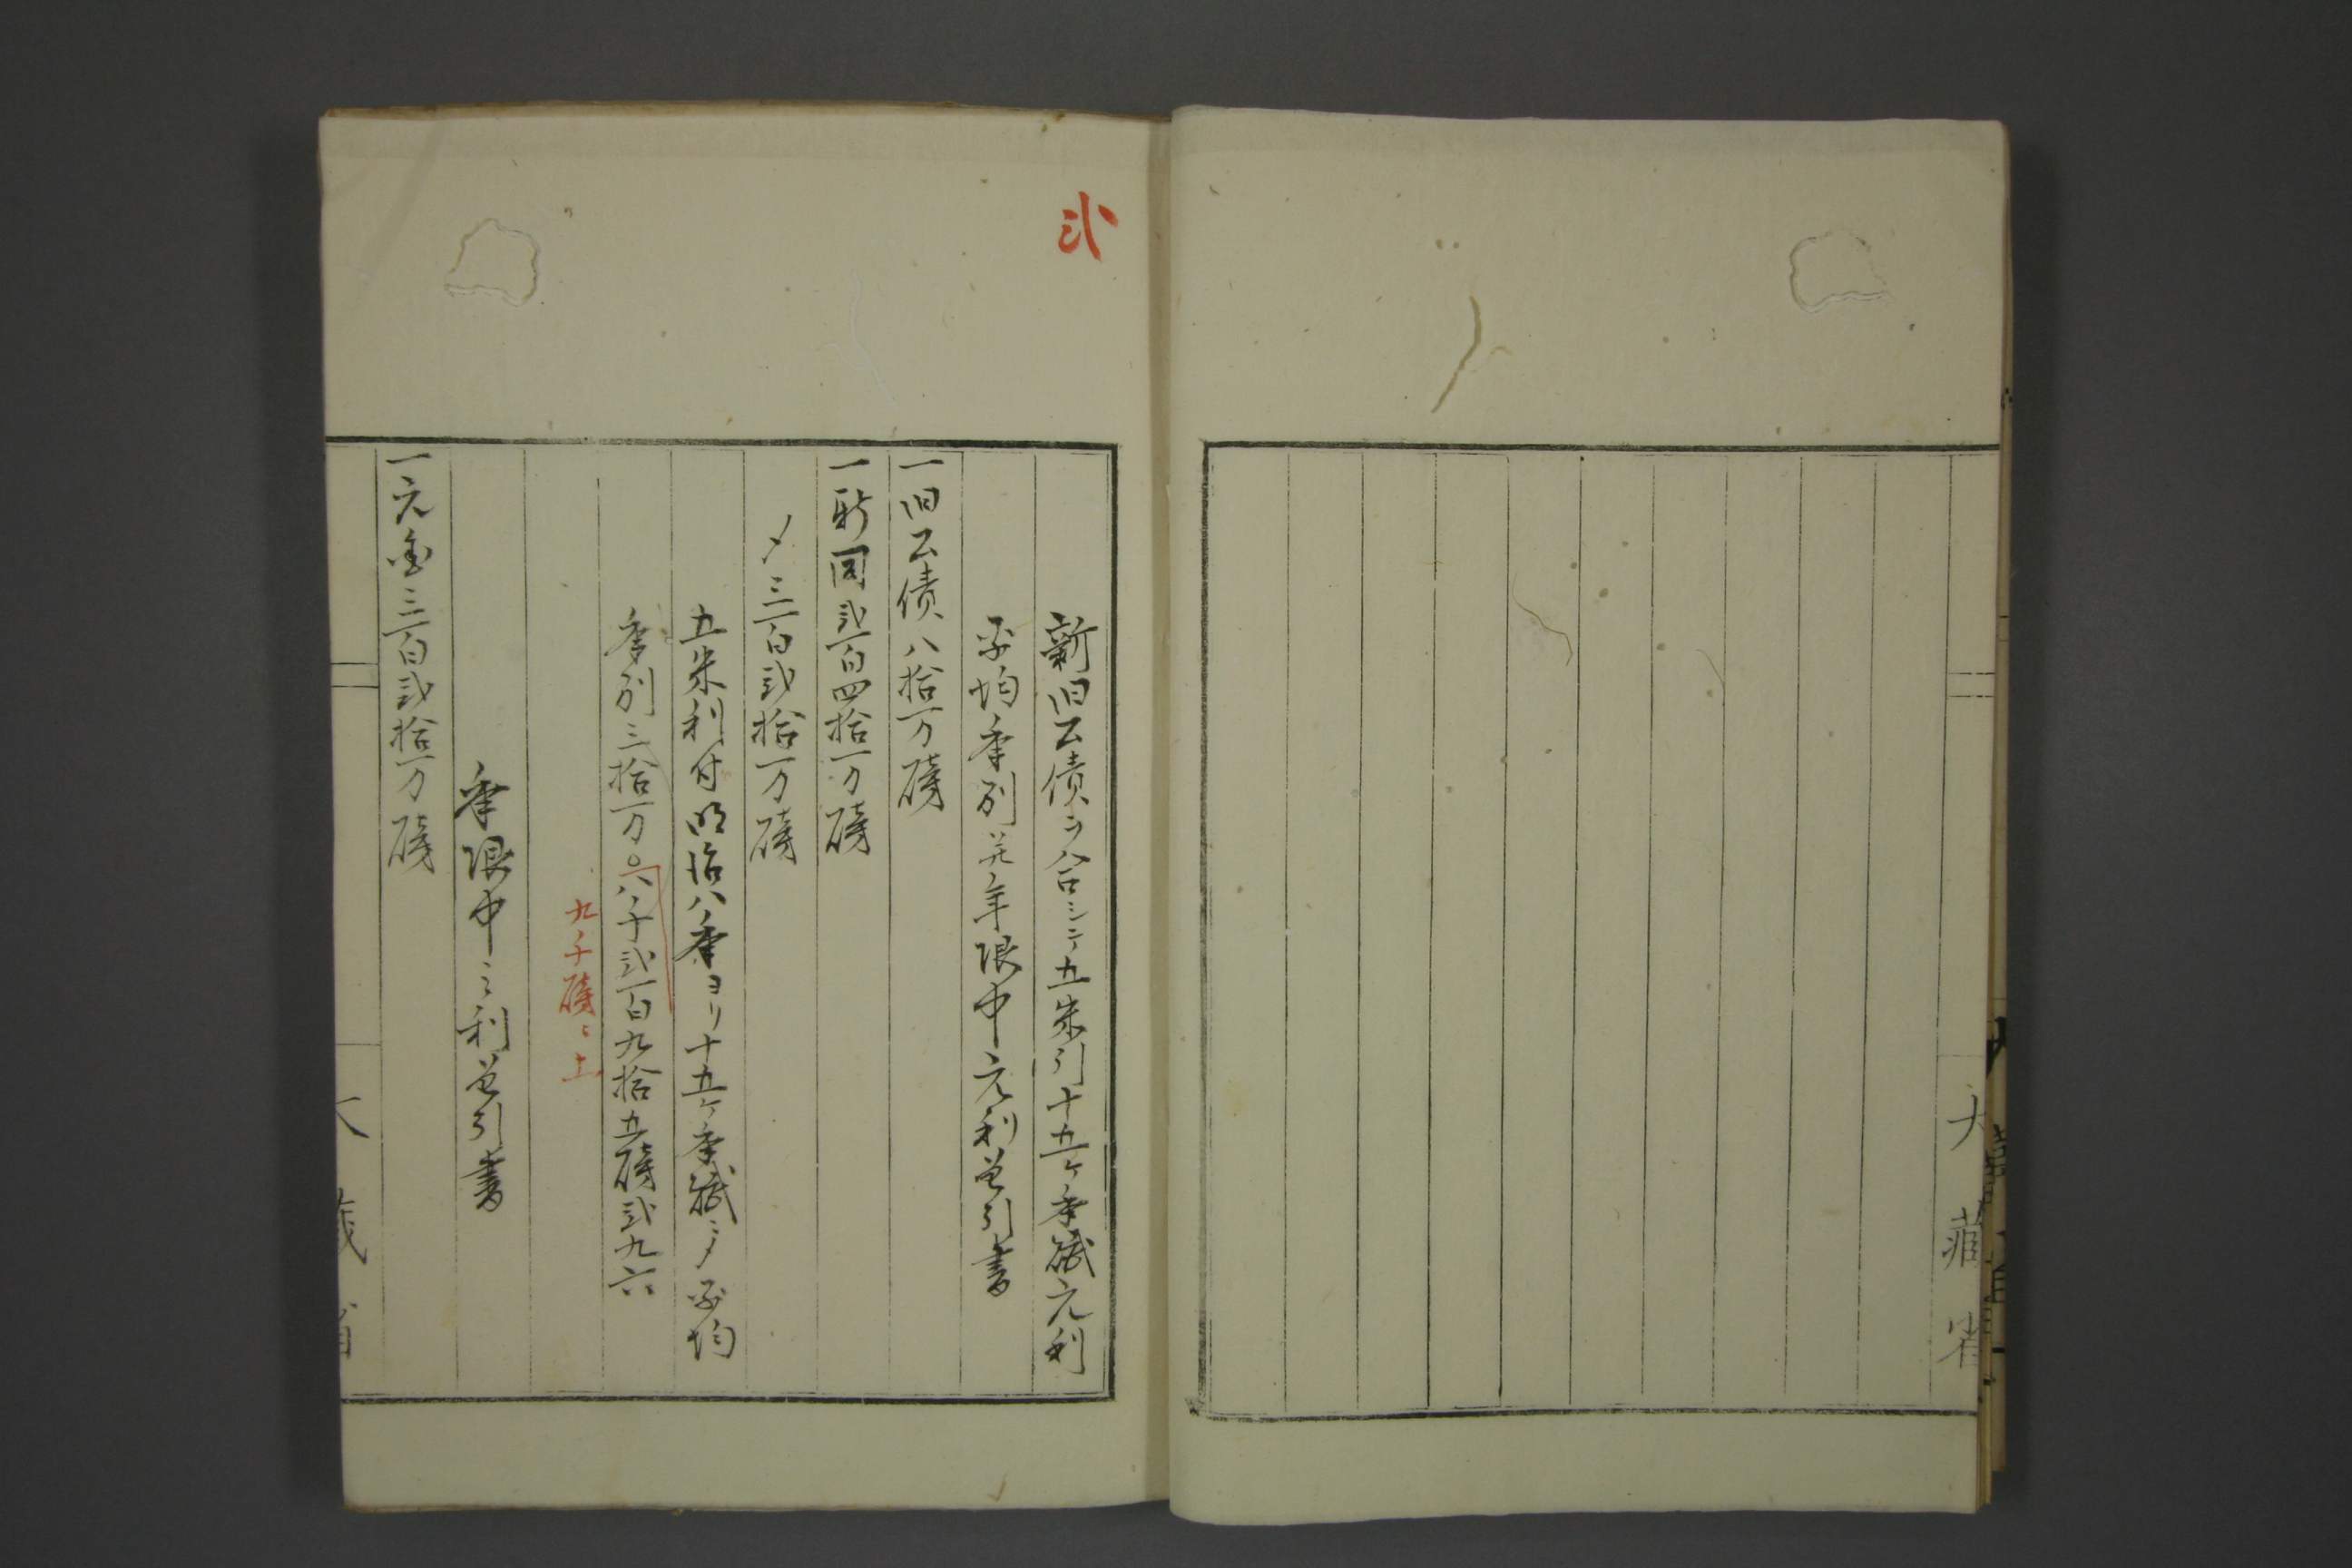 大蔵省
新旧公債ヲ合シテ五朱引十五ケ季賦元利
平均季別并年限中元利差引書
一旧公債八拾万磅
一新同弐百四拾万磅
〆三百弐拾万磅
五朱利付明治八季ヨリ十五ケ季賦ニ〆平均
季別三拾万〇八千弐百九拾五磅弐九六
九千磅
季限中之利差引書
一元金三百弐拾万磅
大蔵省